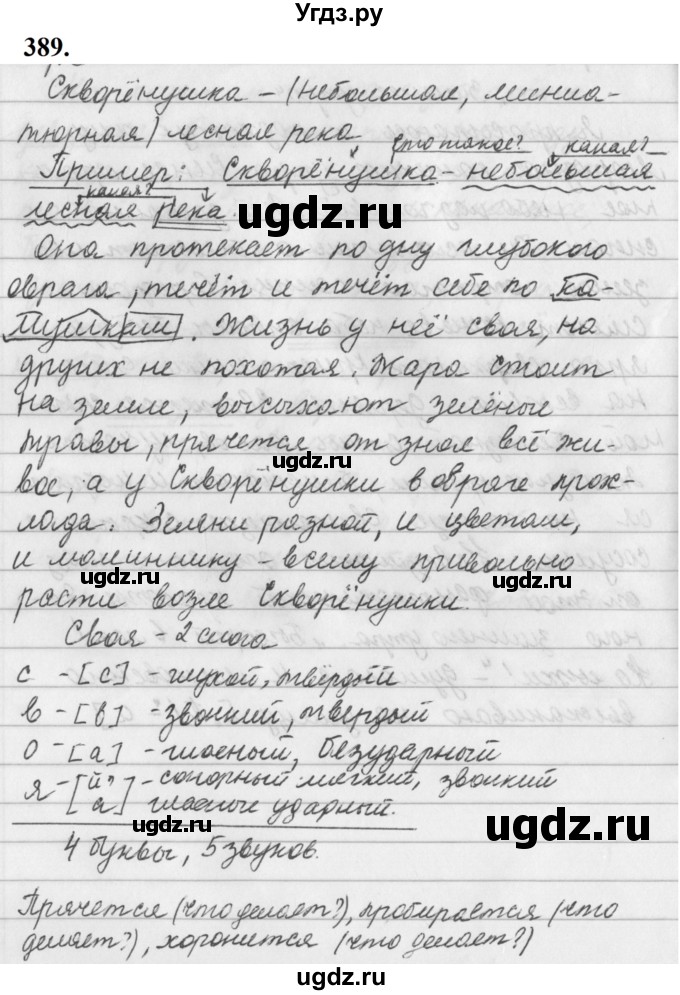 Угдз.ру
389.
Скворёнушка – (небольшая, миниа-
тюрная) лесная река
что такое? какая?
Пример: Скворёнушка – небольшая
какая?
лесная река.
Она протекает по дну глубокого
оврага, течёт и течёт себе по ка-
мушкам. Жизнь у неё своя, на
других не похожая. Жара стоит
на земле, высыхают зелёные
травы, прячется от зноя всё жи-
вое, а у Скворёнушки в овраге прох-
лада. Зелени разной, и цветам,
и малиннику – всему привольно
расти возле Скворёнушки.
Своя – 2 слога
с – [с] – глухой, твёрдый
в – [в] – звонкий, твердый
о – [а] – гласный, безударный
я – [й'] – сонорный мягкий, звонкий
[а] гласные ударный.
4 буквы, 5 звуков.
Прячется (что делает?), пробирается (что
делает?), хоронится (что делает?)
ugdz.ru
ugdz.ru
ugdz.ru
ugdz.ru
ugdz.ru
ugdz.ru
ugdz.ru
ugdz.ru